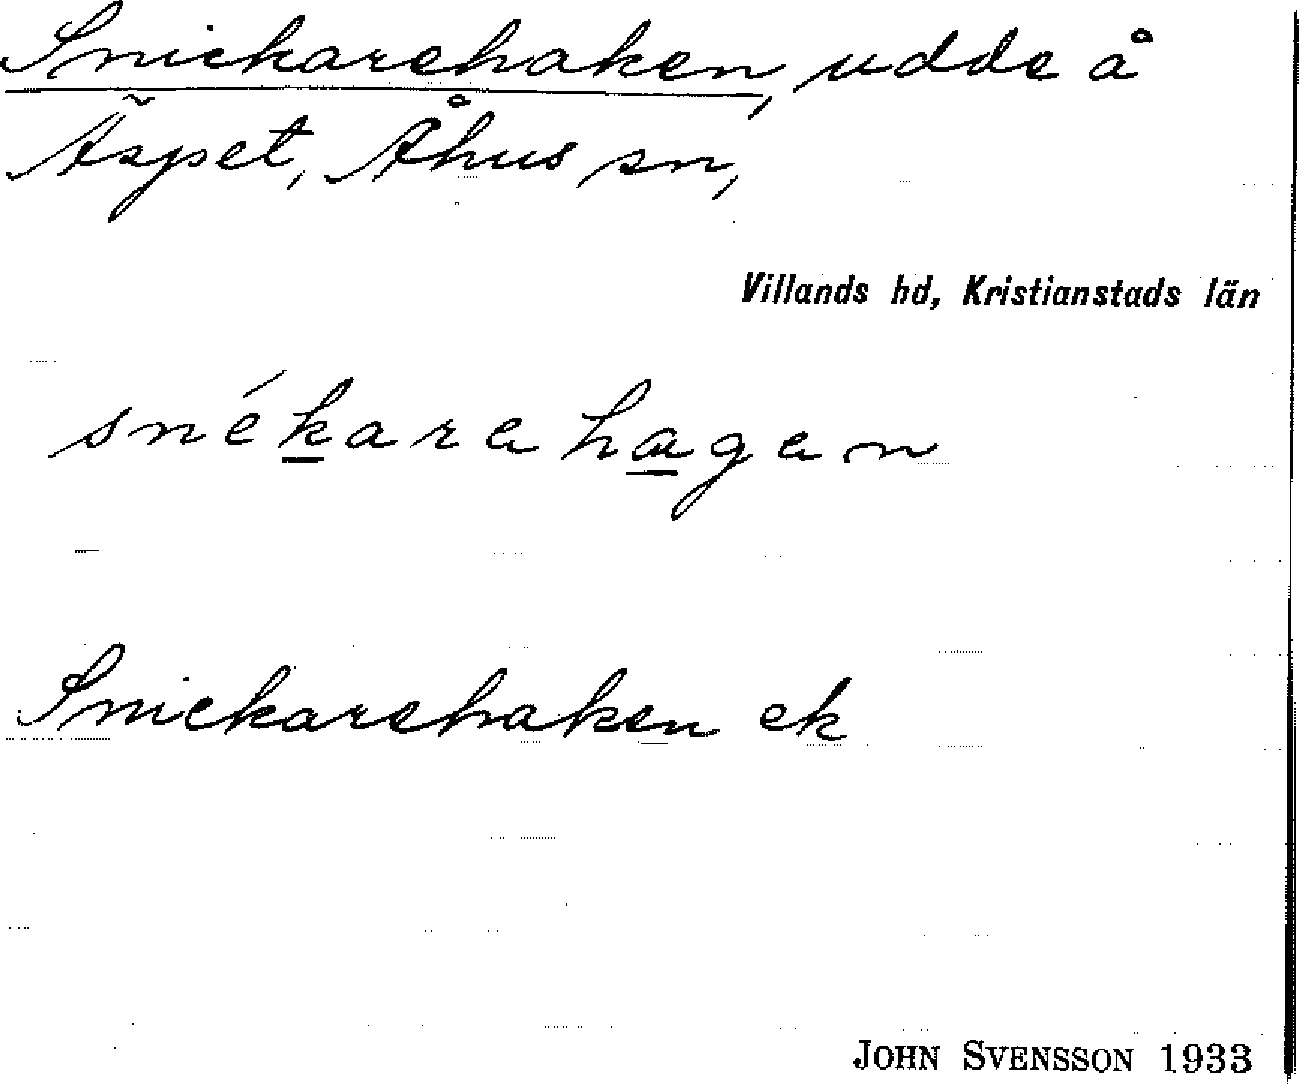 Snickarehaken, udde å
Äspet, Åhus sn,
Villands hd, Kristianstads län
snékara hagan
Snickarehaken ek
JOHN SVENSSON 1933